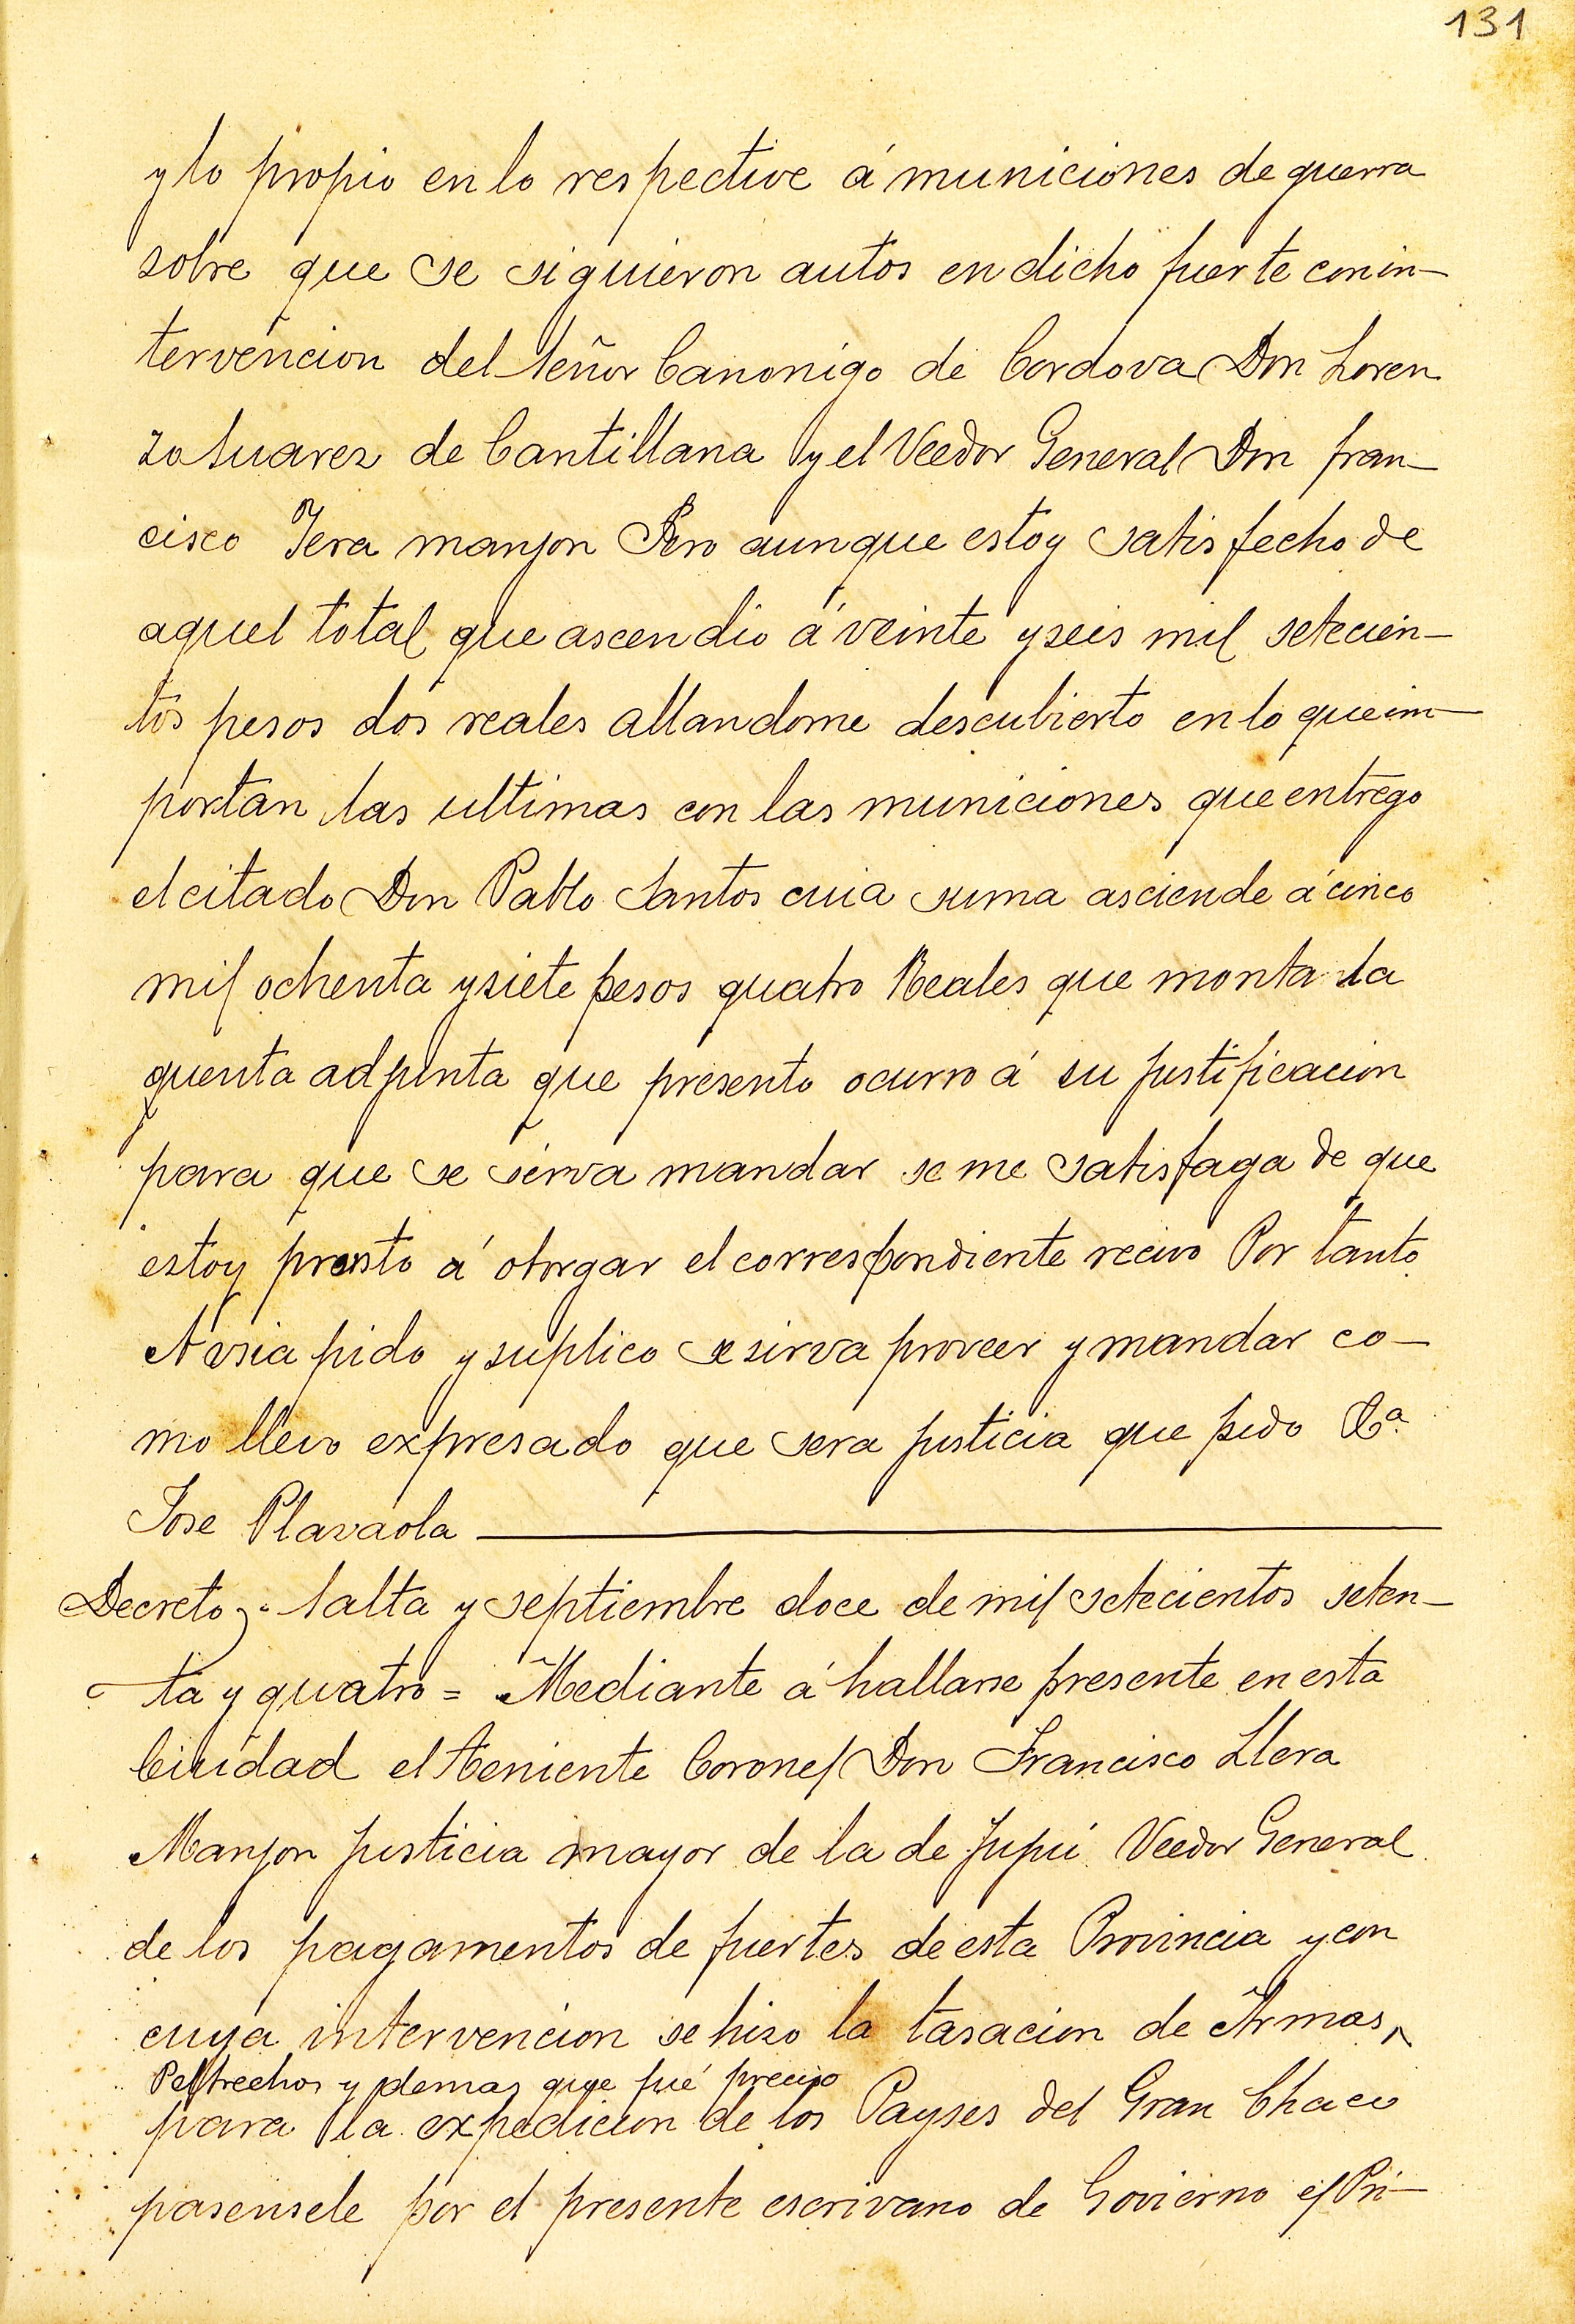 131
y lo propio en lo respective á municiones de guerra
sobre que se siguieron autos en dicho fuerte con in-
tervencion del Señor Canonigo de Cordova Don Loren
zo Suarez de Cantillana y el Veedor General Don fran-
cisco Jera manjon Pero aunque estoy satisfecho de
aquel total que ascendio á veinte y seis mil setecien-
tos pesos dos reales allandome descubierto en lo que im-
portan las ultimas con las municiones que entrego
el citado Don Pablo Santos cuia suma asciende á cinco
mil ochenta y siete pesos quatro Reales que monta la
quenta adjunta que presento ocurro á su justificacion
para que se sirva mandar se me satisfaga de que
estoy pronto á otorgar el correspondiente recivo Por tanto
A vsia pido y suplico se sirva proveer y mandar co-
mo llevo expresado que sera justicia que pido &a
Jose Plavaola
Decreto. Salta y septiembre doce de mil setecientos seten-
ta y quatro = Mediante á hallarse presente en esta
Ciudad el Teniente Coronel Don Francisco Llera
Manjon justicia mayor de la de Jujui Veedor General
de los pagamentos de fuertes de esta Provincia y con
cuya intervencion se hizo la tasacion de Armas,
Peltrechos y demas que fué preciso
para la expedicion de los Payses del Gran Chaco
pasensele por el presente escrivano de Govierno el Pri-